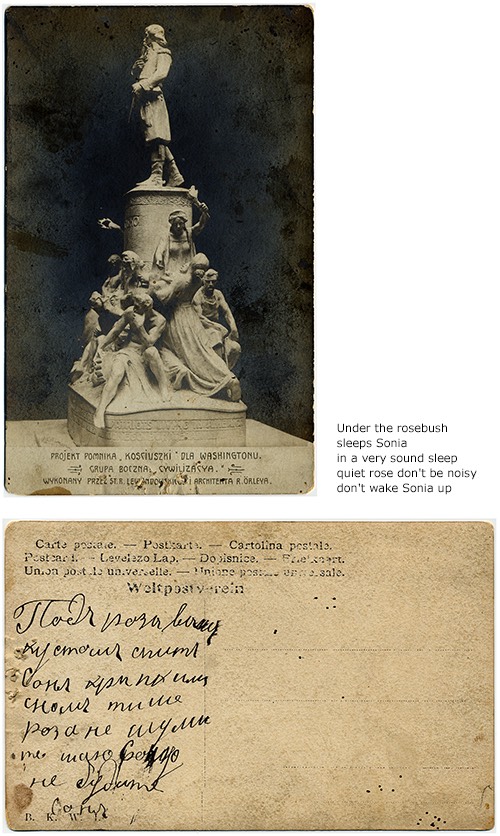 PROJEKT POMNIKA „KOSCIUSZKI" DLA WASHINGTONU.
GRUPA BOCZNA: „CYWILIZACYA."
WYKONANY PRZEZ ST. R. LEWANDOWSKIEGO I ARCHITEKTA R. ÖRLEYA.
Under the rosebush
sleeps Sonia
in a very sound sleep
quiet rose don't be noisy
don't wake Sonia up
Carte postale. — Postkarte. — Cartolina postale.
Postcard. — Levelezo Lap. — Dopisnice. — Briefkaart.
Union postale universelle. — Unione postale universale.
Weltpostverein
Подъ розавому
кустомъ спитъ
Соня крипкимъ
сномъ тише
роза не шуми
те Соню
не будите
Соня
B. K. W. I.